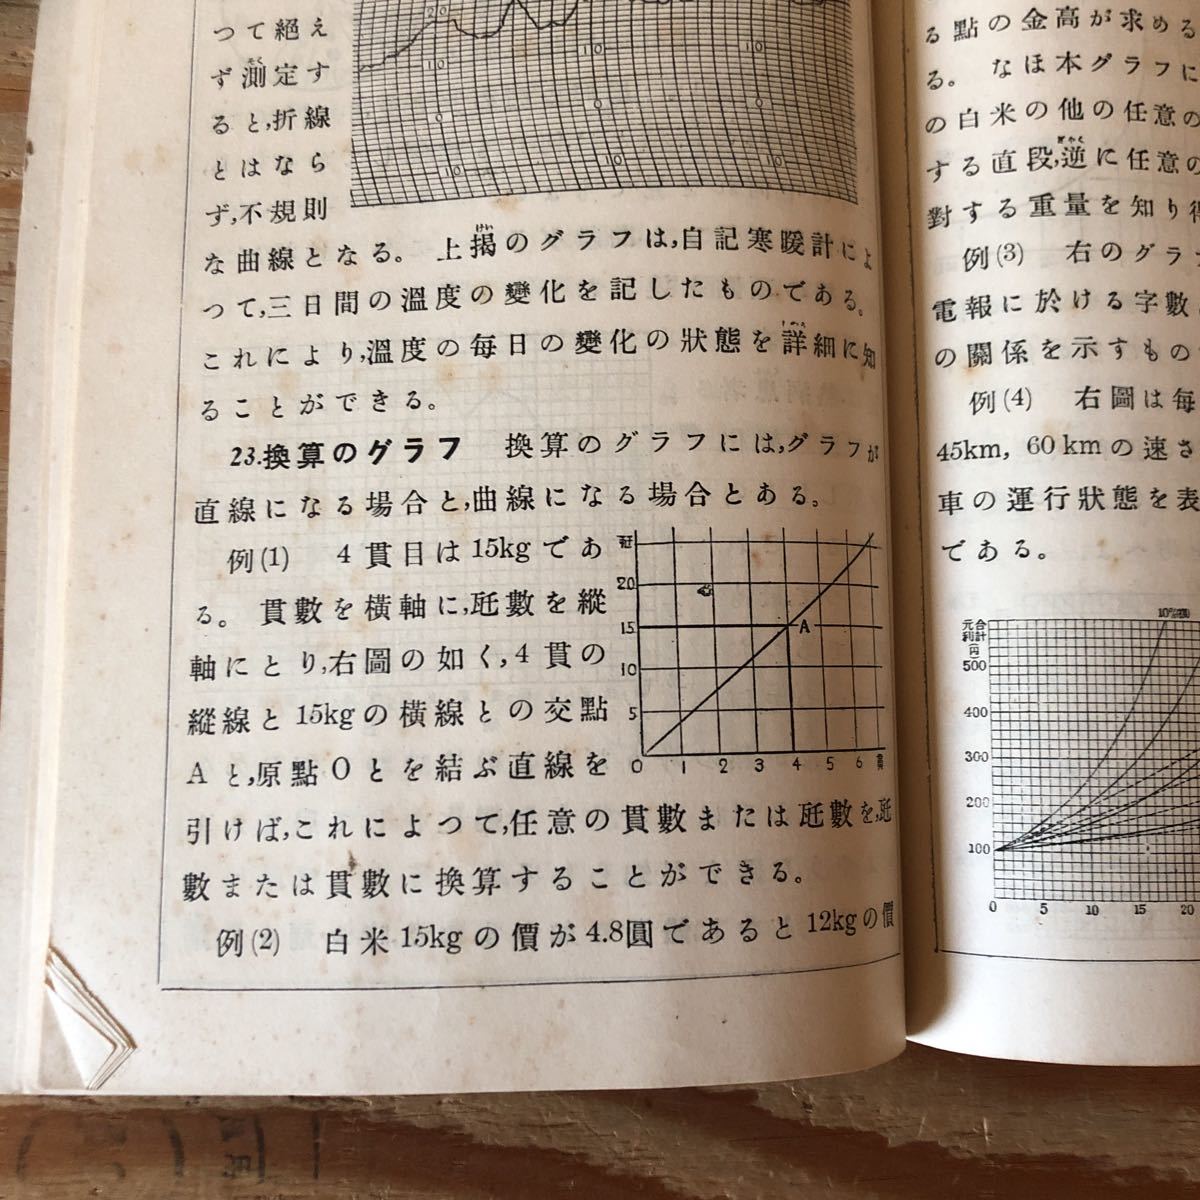 つて絶え
ず測定す
ると,折線
とはなら
ず,不規則
な曲線となる。 上掲のグラフは,自記寒暖計によ
つて,三日間の溫度の變化を記したものである。
これにより,溫度の毎日の變化の狀態を詳細に知
ることができる。
23.換算のグラフ 換算のグラフには,グラフが
直線になる場合と,曲線になる場合とある。
例(1) 4貫目は15kgであ
る。 貫數を橫軸に,瓩數を縱
軸にとり,右圖の如く,4貫の
縱線と15kgの橫線との交點
Aと,原點Oとを結ぶ直線を
引けば,これによつて,任意の貫數または瓩數を,瓩
數または貫數に換算することができる。
例(2) 白米15kgの價が4.8圓であると12kgの價
瓩
20
15
10
5
A
0 1 2 3 4 5 6 貫
る點の金高が求める
る。 なほ本グラフに
の白米の他の任意の
する直段,逆に任意の
對する重量を知り得
例(3) 右のグラフ
電報に於ける字數
の關係を示すもの
例(4) 右圖は每
45km, 60kmの速さ
車の運行狀態を表
である。
元利合計
円
500
400
300
200
100
0 5 10 15 20